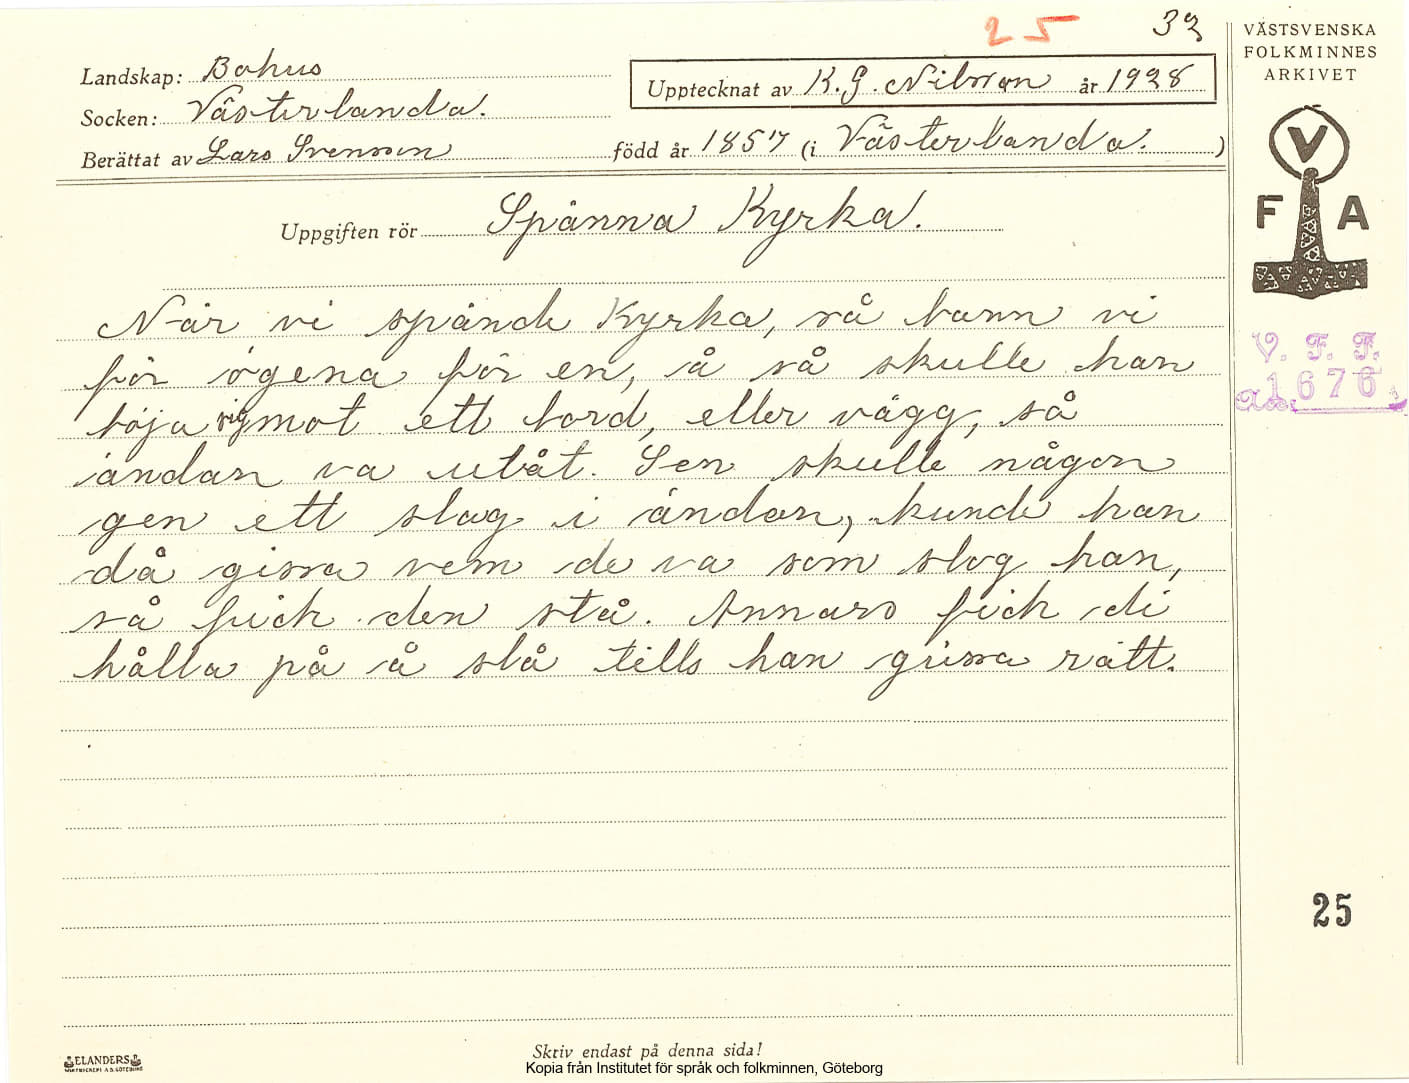 25 32
VÄSTSVENSKA
FOLKMINNES
ARKIVET
Landskap: Bohus
Upptecknat av K. G. Nilsson år 1928
Socken: Västerlanda.
Berättat av Lars Svensson född år 1857 (i Västerlanda.)
V
F A
Uppgiften rör Spänna Kyrka.
När vi spände Kyrka, så bann vi
för ögena för en, å så skulle han
böja sig mot ett bord, eller vägg, så
ändan va utåt. Sen skulle någon
gen ett slag i ändan, kunde han
då gissa vem de va som slog han,
så fick den stå. Annars fick di
hålla på å slå tills han gissa rätt.
V. F. F.
Acc. 1676
25
ELANDERS
Skriv endast på denna sida!
Kopia från Institutet för språk och folkminnen, Göteborg